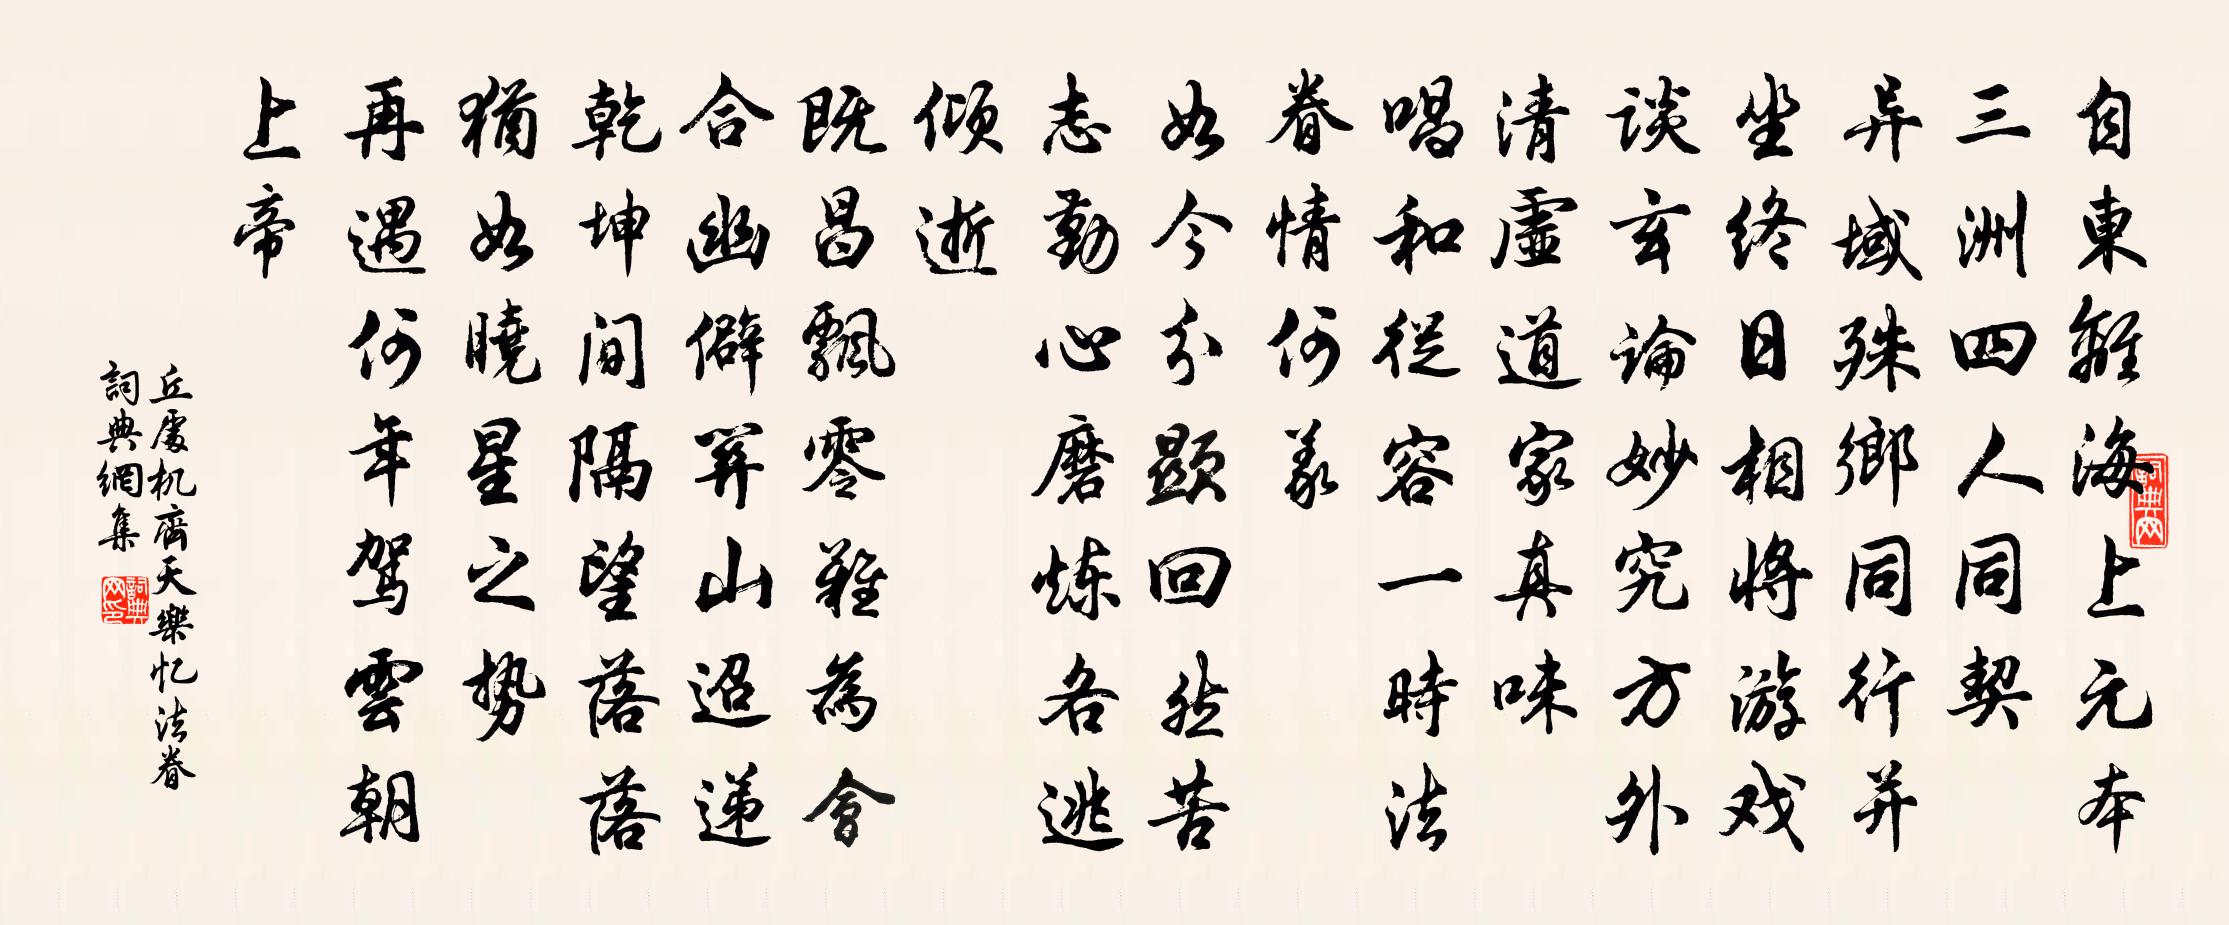 自東離海上元本
三洲四人同契
异域殊鄉同行并
坐终日相將游戏
谈玄論妙究方外
清虛道家真味
唱和從容一時法
眷情何義
如今分顯回然苦
志勤心磨炼各逃
倾逝
既昌飄零難為會
合幽僻關山迢递
乾坤间隔望落落
猶如曉星之势
再遇何年驾雲朝
上帝
丘處机齊天樂忆法眷
詞典網集
詞典网